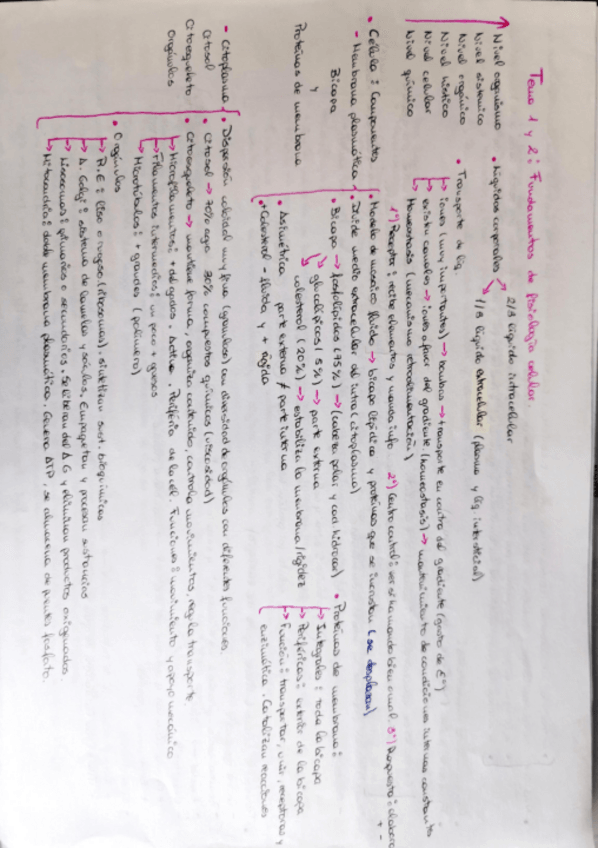 Tema 1 y 2: Fundamentos de fisiología celular.
Nivel organismo
Nivel sistémico
Nivel orgánico
Nivel hístico
Nivel celular
Nivel químico
• Líquidos corporales
2/3 líquido intracelular
1/3 líquido extracelular (plasma y líq. intersticial)
• Transporte de líq.
iones (muy importantes) → bombas → transporte en contra del gradiente (gasto de Eº)
existen canales → iones a favor del gradiente (homeostasis) → mantenimiento de condiciones internas constantes
Homeostasis (mecanismo retroalimentación)
1º) Receptor: recibe elementos y manda info 2º) Centro control: ver si ha mandado bien o mal. 3º) Respuesta: elabora
+ -
• Célula: Componentes
- Membrana plasmática
Bicapa
y
Proteínas de membrana
• Modelo de mosaico fluido → bicapa lipídica y proteínas que se incrustan (se desplazan)
• Divide medio extracelular del intra (citoplasma)
• Bicapa → fosfolípidos (75%) → (cabeza polar y cad hidrocar)
glucolípidos (5%) → parte externa
colesterol (20%) → estabiliza la membrana/rigidez
• Asimétrica parte externa ≠ parte interna
• Colesterol - fluida y + rígida
• Proteínas de membrana:
Integrales: toda la bicapa
Periféricas: exterior de la bicapa
Función: transportar, unir, receptoras y
enzimática. Catalizan reacciones
- Citoplasma
Citosol
Citoesqueleto
Orgánulos
• Dispersión coloidal muy fina (grumosa) con diversidad de orgánulos con diferentes funciones.
• Citosol → 70% agua 30% compuestos químicos (viscosidad)
• Citoesqueleto → mantiene forma, organiza contenidos, controla movimientos, regula transporte
Microfilamentos: + delgados. Actina. Periferia de la cél. Funciones: movimiento y apoyo mecánico
Filamentos intermedios: un poco + gruesos
Microtúbulos: + grandes (polímero)
• Orgánulos
R.E: liso o rugoso (ribosomas). sintetizan sust. bioquímicas
A. Golgi: sistema de lamelas y sáculos. Empaquetan y procesan sustancias
Lisosomas: primarios o secundarios. Se liberan del A G y eliminan productos
Mitocondria: doble membrana plasmática. Genera ATP, se almacena de fosfato.